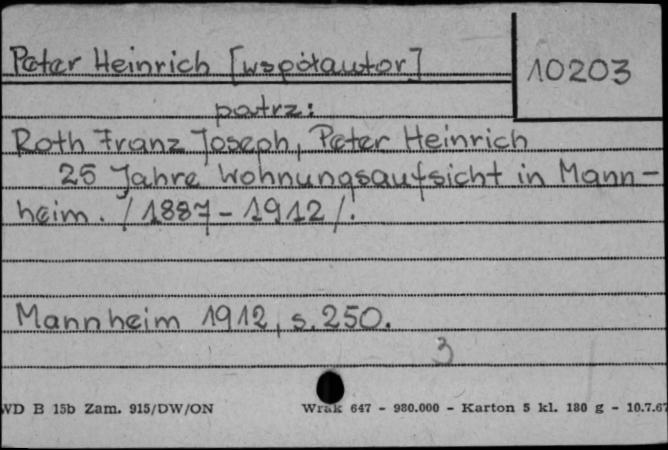 Peter Heinrich [współautor]
10203
patrz:
Roth Franz Joseph, Peter Heinrich
25 Jahre Wohnungsaufsicht in Mann-
heim. /1887-1912/.
Mannheim 1912, s. 250.
3
WD B 15b Zam. 915/DW/ON
Wrak 647 - 980.000 - Karton 5 kl. 180 g - 10.7.67